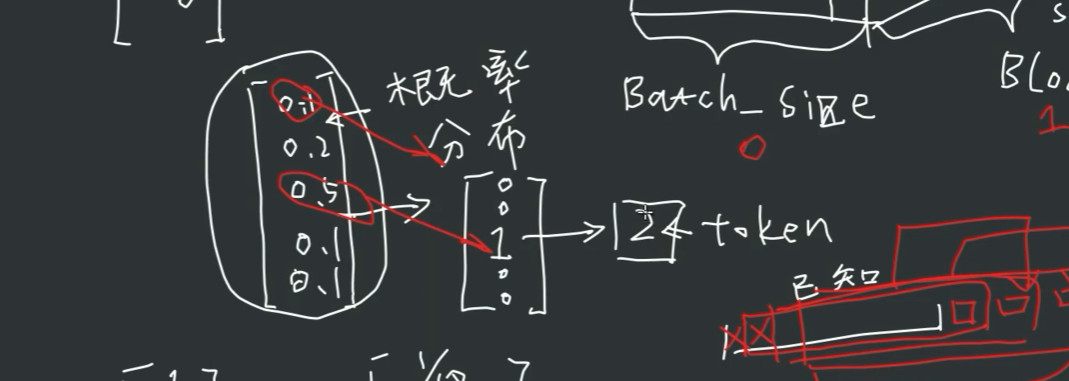 0.1
0.2
0.5
0.1
0.1
概率
分布
0
0
1
0
0
2
token
Batch_Size
0
Blo
1
已知
1
1/10